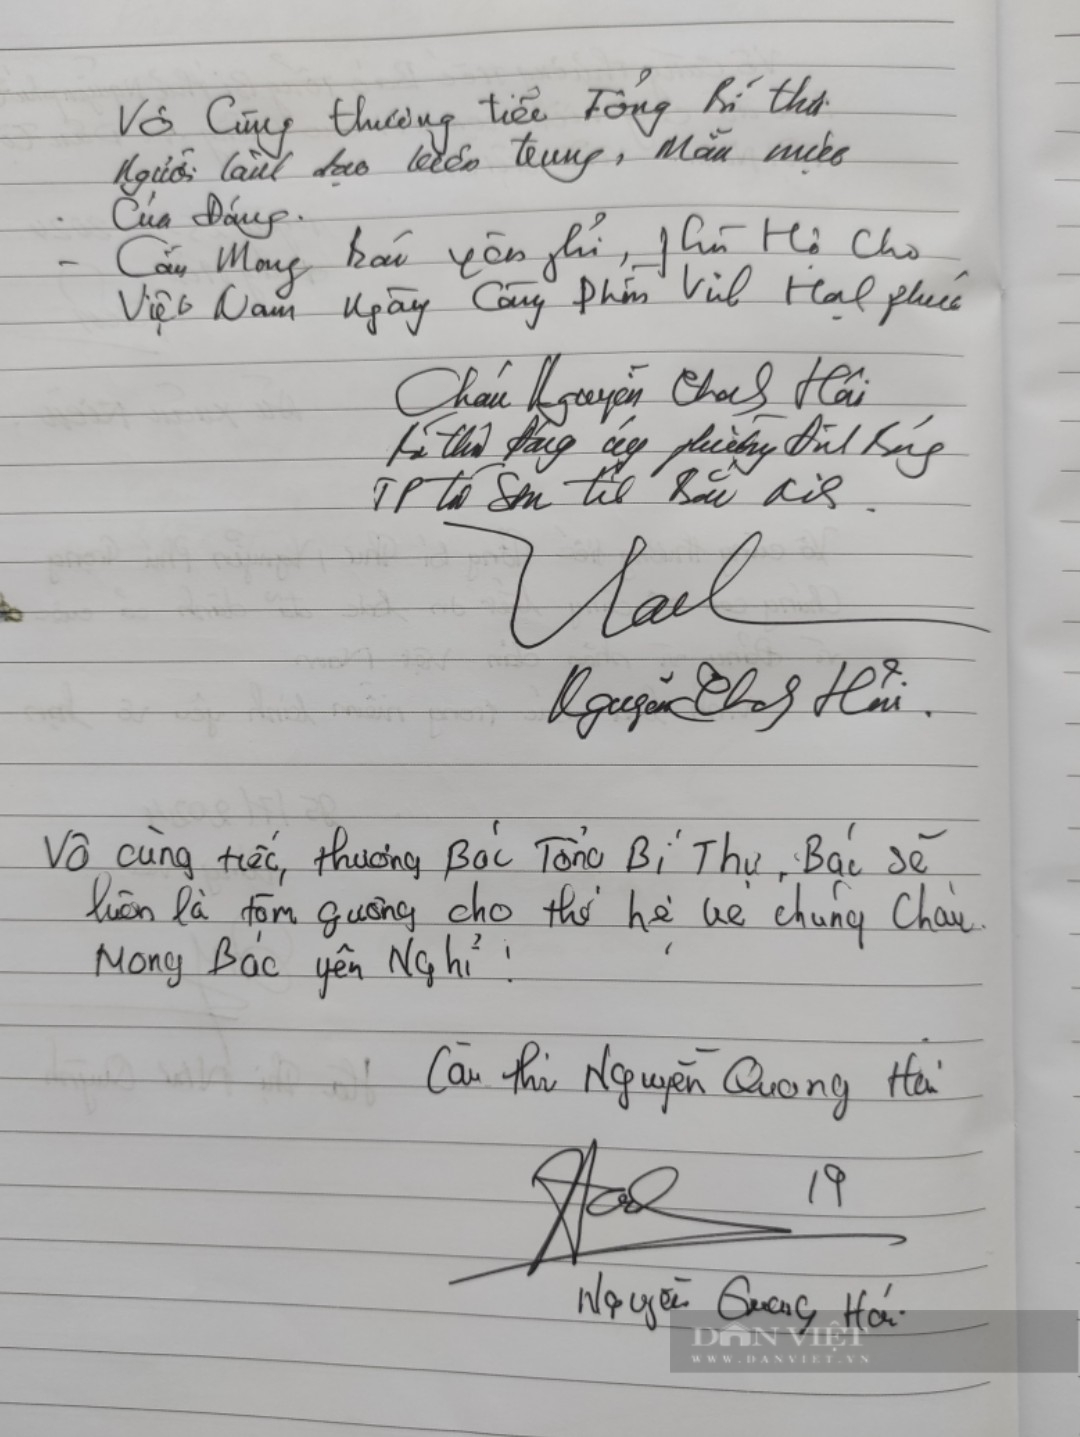 Vô Cùng thương tiếc Tổng Bí thư
Người lãnh đạo kiên trung, Mẫu mực
Của Đảng.
- Cầu Mong Bác yên nghỉ, Phù Hộ Cho
Việt Nam Ngày Càng Phồn Vinh Hạnh phúc
Cháu Nguyễn Hải
Bí thư Đảng ủy phường Đình Bảng
TP Từ Sơn tỉnh Bắc Ninh.
Nguyễn Hải.
Vô cùng tiếc, thương Bác Tổng Bí Thư, Bác sẽ
luôn là tấm gương cho thế hệ trẻ chúng Cháu.
Mong Bác yên Nghỉ!
Cầu thủ Nguyễn Quang Hải
19
Nguyễn Quang Hải.
DÂN VIỆT
WWW.DANVIET.VN